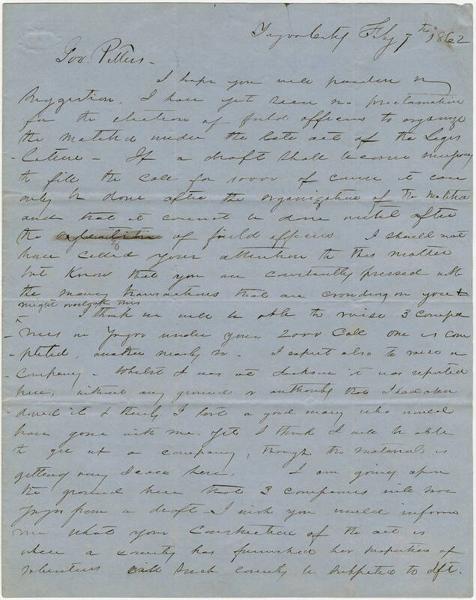 Yazoo City Feby 7th 1862
Gov. Pettus -
I hope you will pardon my
suggestion. I have yet seen no proclamation
for the election of field officers to organize
the Militia under the late act of the Legis
-lature - If a draft shall become necessary
to fill the call for of course it can
only be done after the organization of the Militia
and that it cannot be done until after
the of field officers I should not
have called your attention to this matter
but know that you are constantly pressed with
the many transactions that are crowding on you &
might overlook this
I think we will be able to raise 3 compa
-nies in Yazoo under your 2000 Call one is com
-pleted, another nearly so. I expect also to raise a
company - Whilst I was at Jackson it was reported
here, without any ground or authority that I had
it & thereby I lost a good many who would
have gone with me, yet I think I will be able
to get up a company, though the materials is
getting very scarce here I am going upon
the ground here that 3 companies will save
Yazoo from a draft - I wish you would inform
me what your Construction of the act is
where a county has furnished her proportion of
volunteers will such county be subjected to dft.